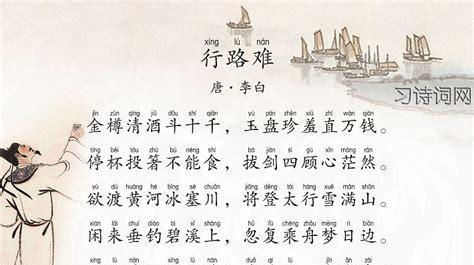 xíng lù nán
行路难
唐·李白
习诗词网
jīn zūn qīng jiǔ dǒu shí qiān yù pán zhēn xiū zhí wàn qián
金樽清酒斗十千，玉盘珍羞直万钱。
tíng bēi tóu zhù bù néng shí bá jiàn sì gù xīn máng rán
停杯投箸不能食，拔剑四顾心茫然。
yù dù huáng hé bīng sè chuān jiāng dēng tài háng xuě mǎn shān
欲渡黄河冰塞川，将登太行雪满山。
xián lái chuí diào bì xī shàng hū fù chéng zhōu mèng rì biān
闲来垂钓碧溪上，忽复乘舟梦日边。